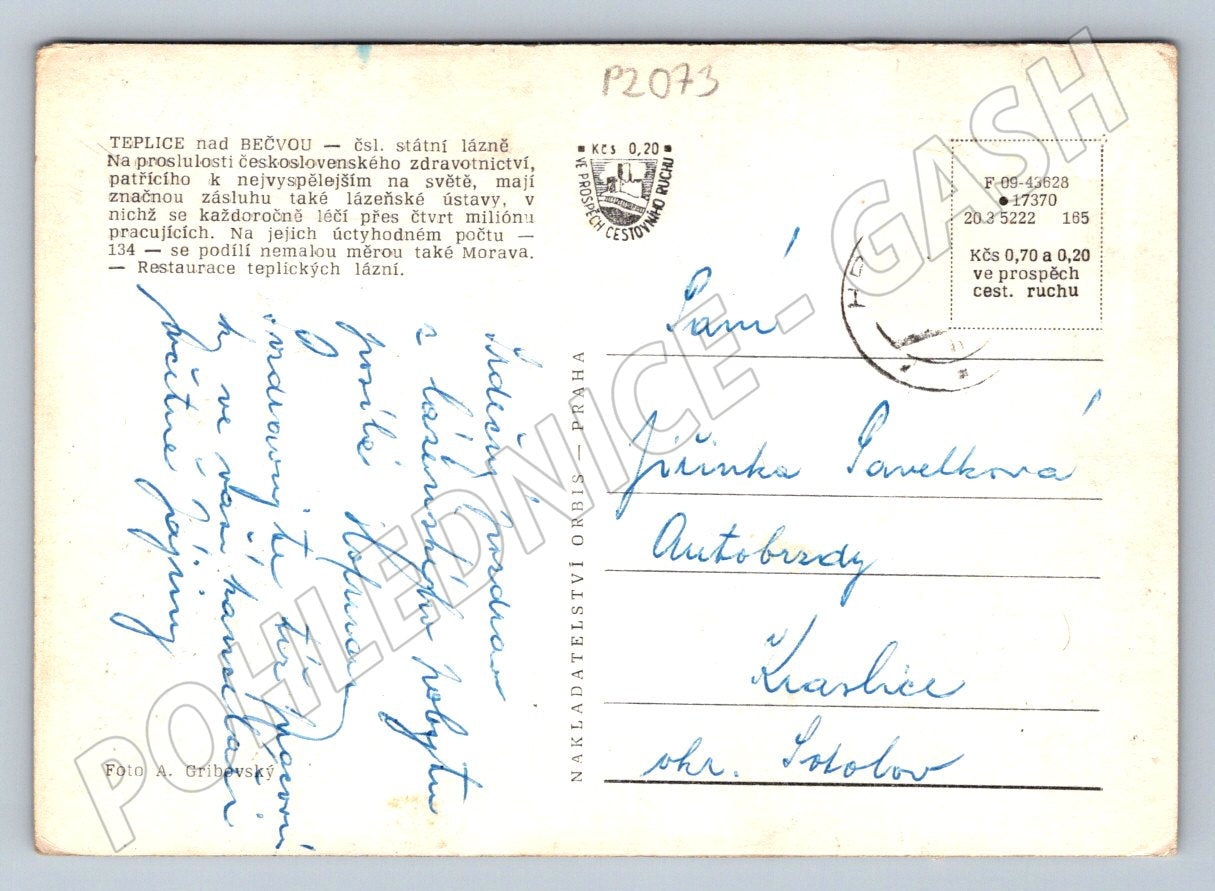 P2073
TEPLICE nad BEČVOU — čsl. státní lázně
Na proslulosti československého zdravotnictví,
patřícího k nejvyspělejším na světě, mají
značnou zásluhu také lázeňské ústavy, v
nichž se každoročně léčí přes čtvrt miliónu
pracujících. Na jejich úctyhodném počtu —
134 — se podílí nemalou měrou také Morava.
— Restaurace teplických lázní.
Srdečný pozdrav
z lázeňského pobytu
posílá
Pozdravujte též
ky ve vaší
Foto A. Gribovský
NAKLADATELSTVÍ ORBIS — PRAHA
Kčs 0,20
VE PROSPĚCH CESTOVNÍHO RUCHU
F 09-43628
17370
20.3 5222 165
Kčs 0,70 a 0,20
ve prospěch
cest. ruchu
HR
Paní
Jiřinka Pavelková
Autobrzdy
Kraslice
okr. Sokolov
POHLEDNICE - GASH